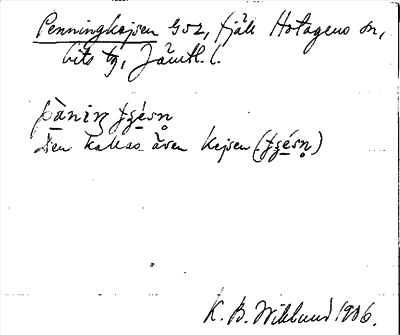 Penningkejsen G52, fjäll Hotagens sn,
Lits tg, Jämtl. l.
pàniŋ ʈʂésn̥
Den kallas även Kejsen (ʈʂésn̥)
K. B. Wiklund 1906.